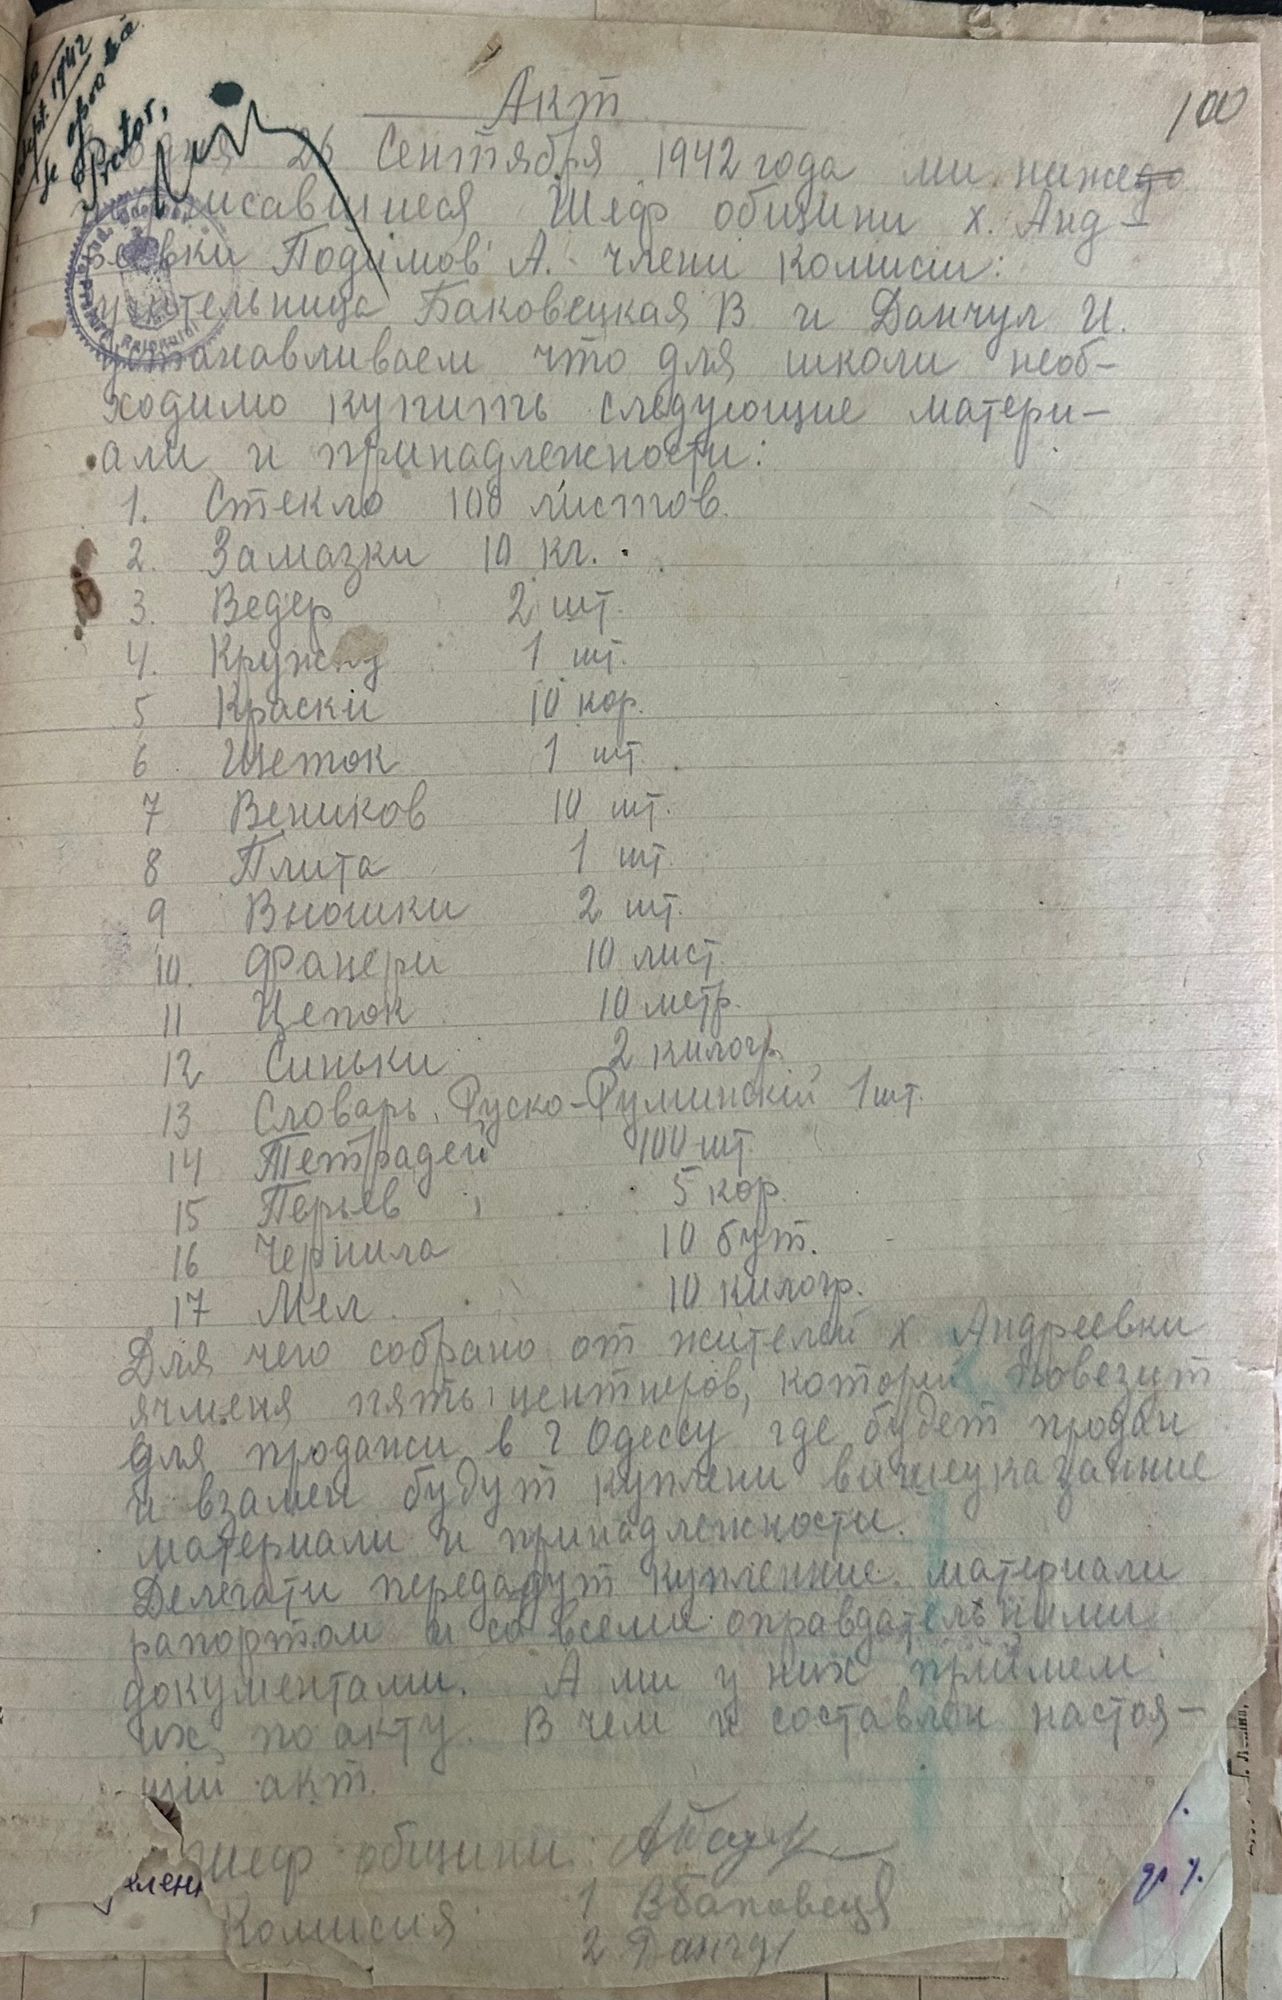 sept. 1942
Se aprobă
Pretor,
100
Акт
26 Сентября 1942 года ми ниже
Шеф общини х. Анд-
Подимов А. члени комисіи:
учительница Баковецкая В и Данчул И.
устанавливаем что для школи необ-
ходимо купить следующие матери-
али и принадлежности:
1. Стекло 100 листов.
2. Замазки 10 кг.
3. Ведер 2 шт.
4. Кружку 1 шт.
5 Краски 10 кор.
6 Щеток 1 шт.
7 Веников 10 шт.
8 Плита 1 шт.
9 Вюшки 2 шт.
10. Фанери 10 лист.
11 Цепок 10 метр.
12 Синьки 2 килогр.
13 Словарь Руско-Руминскій 1 шт.
14 Тетрадей 100 шт.
15 Перьев 5 кор.
16 Чернила 10 бут.
17 Мел 10 килогр.
Для чего собрано от жителей х Андреевки
ячменя пять центнеров, которій повезут
для продажи в г Одессу где будет продан
и взамен будут куплени вишеуказанние
материали и принадлежности.
Делегати передадут купленние материали
рапортом и со всеми оправдательними
документами. А ми у них примем
их по акту. В чем и составлен настоя-
щій акт.
Шеф общини
Комисия 1 ВБаковецк
2 Данчул